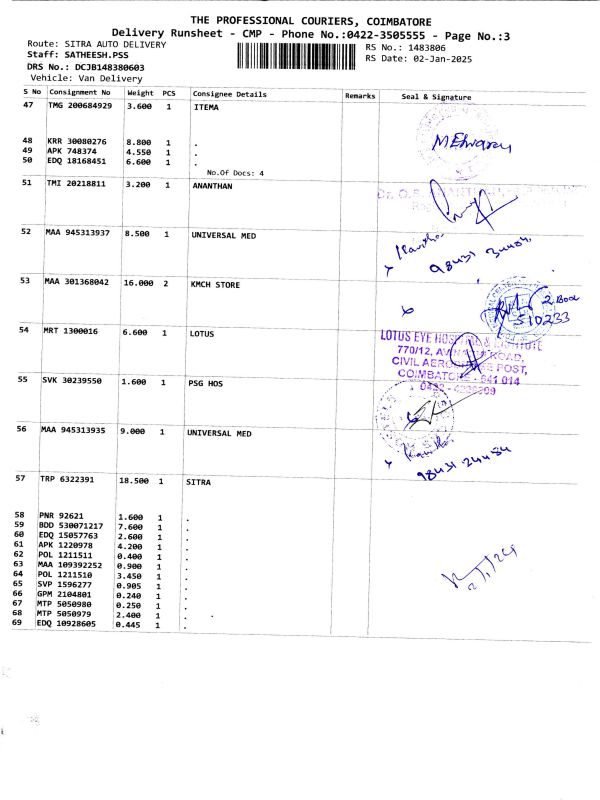 THE PROFESSIONAL COURIERS, COIMBATORE
Delivery Runsheet - CMP - Phone No.:0422-3505555 - Page No.:3
Route: SITRA AUTO DELIVERY
RS No.: 1483806
Staff: SATHEESH.PSS
RS Date: 02-Jan-2025
DRS No.: DCJB148380603
Vehicle: Van Delivery
S No Consignment No Weight PCS Consignee Details Remarks Seal & Signature
47 TMG 200684929 3.600 1 ITEMA
48 KRR 30080276 8.800 1 .
49 APK 748374 4.550 1 .
50 EDQ 18168451 6.600 1 .
No.Of Docs: 4
51 TMI 20218811 3.200 1 ANANTHAN
52 MAA 945313937 8.500 1 UNIVERSAL MED
53 MAA 301368042 16.000 2 KMCH STORE
2 Box
510233
54 MRT 1300016 6.600 1 LOTUS
LOTUS EYE HOSPITAL & INSTITUTE
770/12, AVINASHI ROAD,
CIVIL AERODROME POST,
COIMBATORE - 641 014
55 SVK 30239550 1.600 1 PSG HOS
56 MAA 945313935 9.000 1 UNIVERSAL MED
57 TRP 6322391 18.500 1 SITRA
58 PNR 92621 1.600 1 .
59 BDD 530071217 7.600 1 .
60 EDQ 15057763 2.600 1 .
61 APK 1220978 4.200 1 .
62 POL 1211511 0.400 1 .
63 MAA 109392252 0.900 1 .
64 POL 1211510 3.450 1 .
65 SVP 1596277 0.905 1 .
66 GPM 2104801 0.240 1 .
67 MTP 5050980 0.250 1 .
68 MTP 5050979 2.400 1 .
69 EDQ 10928605 0.445 1 .